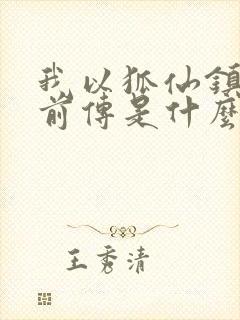 我以狐仙镇
前传是什麼
王秀清